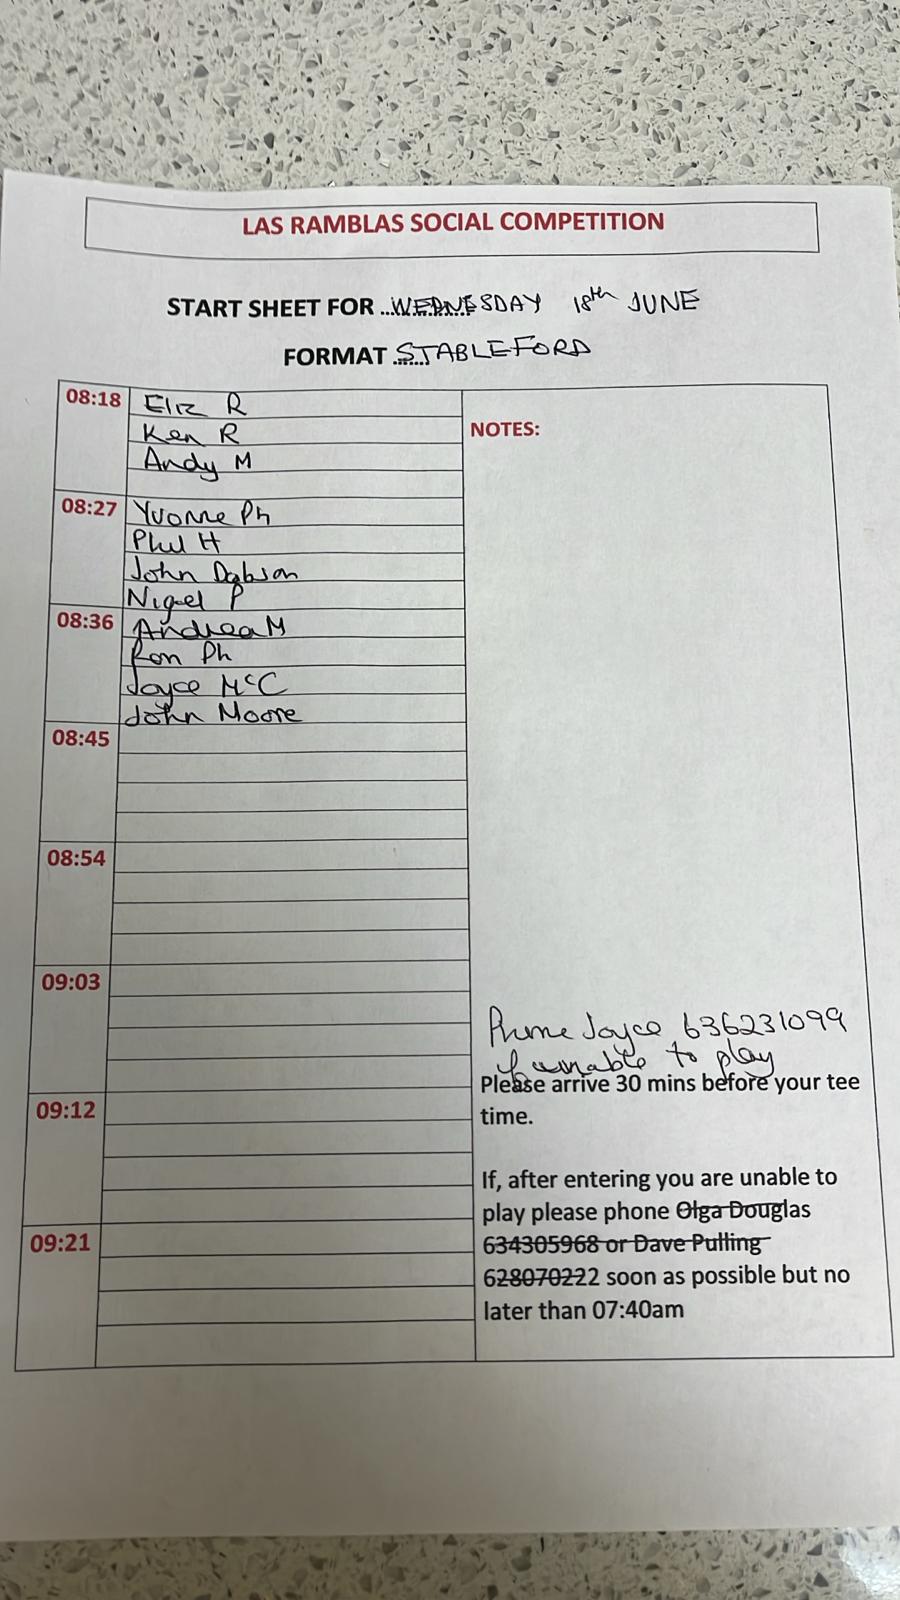 LAS RAMBLAS SOCIAL COMPETITION
START SHEET FOR ...WEDNESDAY 18th JUNE
FORMAT ......STABLEFORD
08:18 Eliz R
Ken R
Andy M
NOTES:
08:27 Yvonne Ph
Phil H
John Dobson
Nigel P
08:36 Andrea M
Ron Ph
Joyce McC
John Moore
08:45
08:54
09:03
09:12
09:21
Phone Joyce 636231099
if unable to play
Please arrive 30 mins before your tee
time.
If, after entering you are unable to
play please phone Olga Douglas
634305968 or Dave Pulling
628070222 soon as possible but no
later than 07:40am